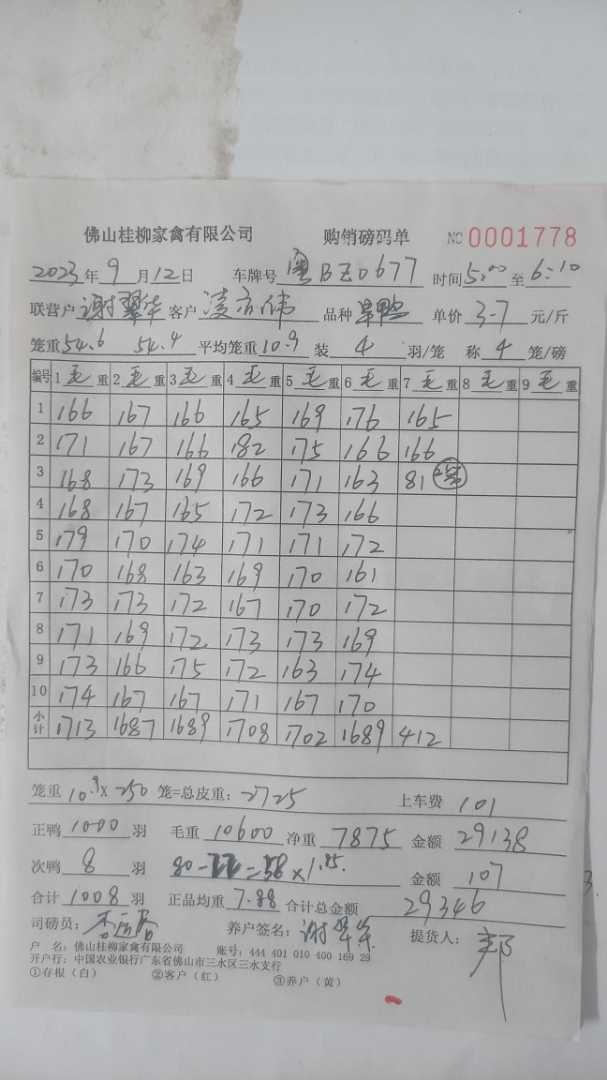 佛山桂柳家禽有限公司 购销磅码单 NO 0001778
2023年9月12日 车牌号 粤BZ0677 时间5:00至6:10
联营户 谢翠华 客户 凌亦伟 品种 单价 3-7 元/斤
笼重54.6 54.4 平均笼重10.9 装 4 羽/笼 称 4 笼/磅
编号 1毛重 2毛重 3毛重 4毛重 5毛重 6毛重 7毛重 8毛重 9毛重
1 166 167 166 165 169 176 165
2 171 167 166 182 175 166 166
3 168 173 169 166 171 163 81
4 168 167 165 172 173 166
5 179 170 174 171 171 172
6 170 168 163 169 170 161
7 173 173 172 167 170 172
8 171 169 172 173 173 169
9 173 166 175 172 163 174
10 174 167 167 171 167 170
小计 1713 1687 1689 1708 1702 1689 412
笼重 10.9 X 250 笼=总皮重:2725 上车费 101
正鸭 1000 羽 毛重 10600 净重 7875 金额 29138
次鸭 8 羽 80- =58×1.85 金额 107
合计 1008 羽 正品均重 7.88 合计总金额 29346
司磅员: 养户签名: 谢翠华 提货人: 邦
户 名:佛山桂柳家禽有限公司 账号:444 401 010 400 169 29
开户行:中国农业银行广东省佛山市三水区三水支行
①存根(白) ②客户(红) ③养户(黄)